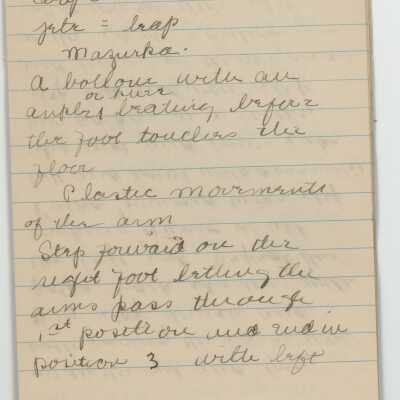 jete = leap
Mazurka.
A bottom with an
ankle or knee beating before
the foot touches the
floor
Plastic movements
of the arm
Step forward on the
right foot letting the
arms pass through
1st position and end in
position 3 with left